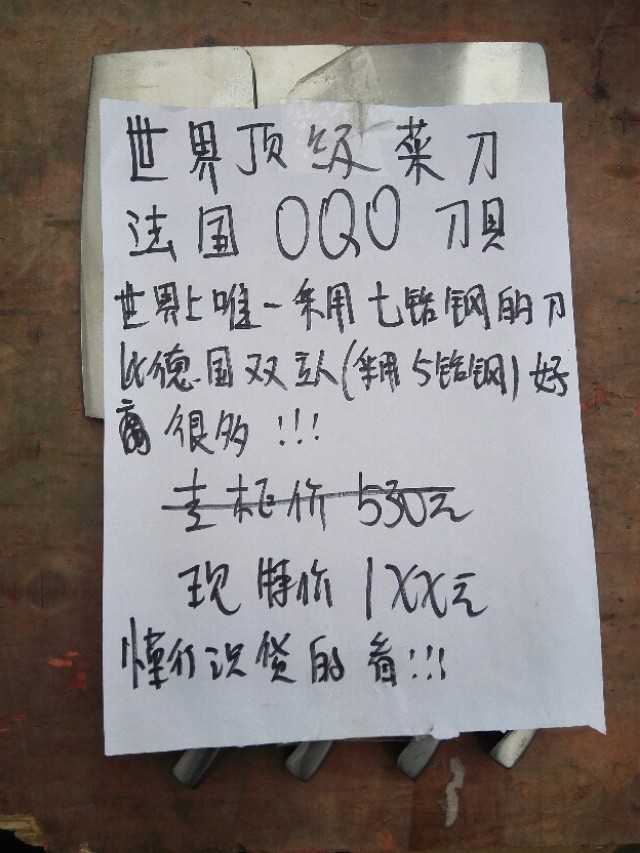 世界顶级菜刀
法国 OQO 刀具
世界上唯一采用七铬钢的刀
比德国双立人(采用5铬钢)好
很多!!!
专柜价 530元
现特价 1XX元
懂行识货的看!!!